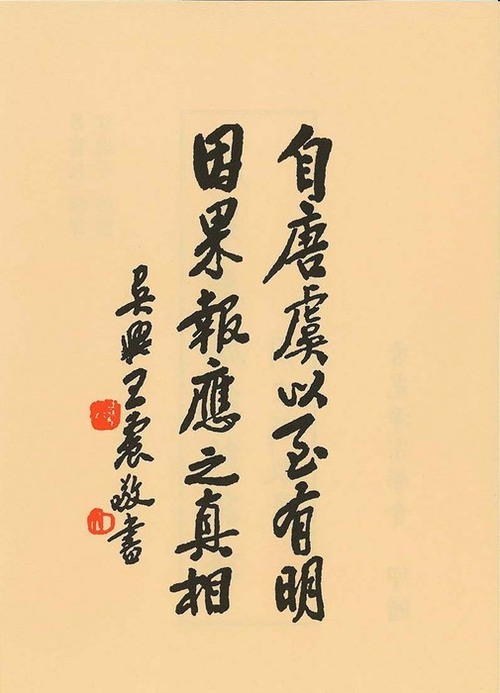 自唐虞以至有明
因果報應之真相
吳興王震敬書